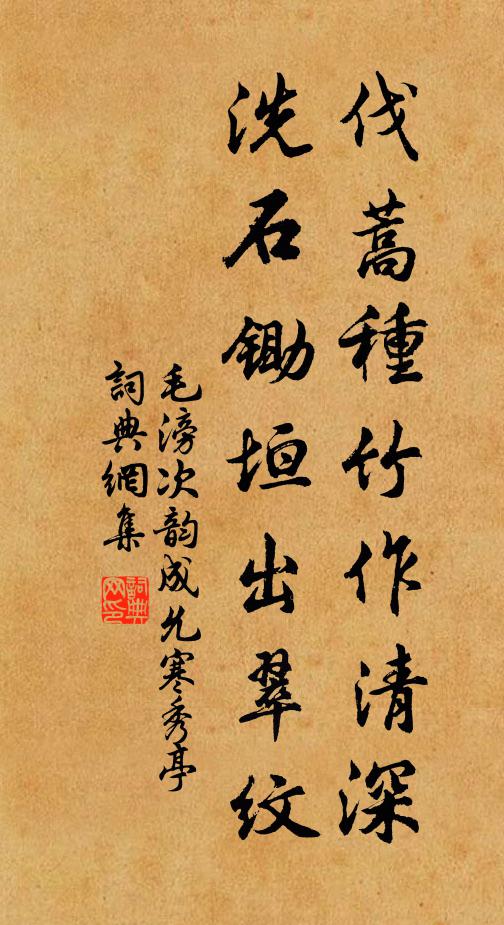 伐蒿種竹作清深
洗石鋤垣出翠紋
毛滂次韵成允寒秀亭
詞典網集
詞典网印